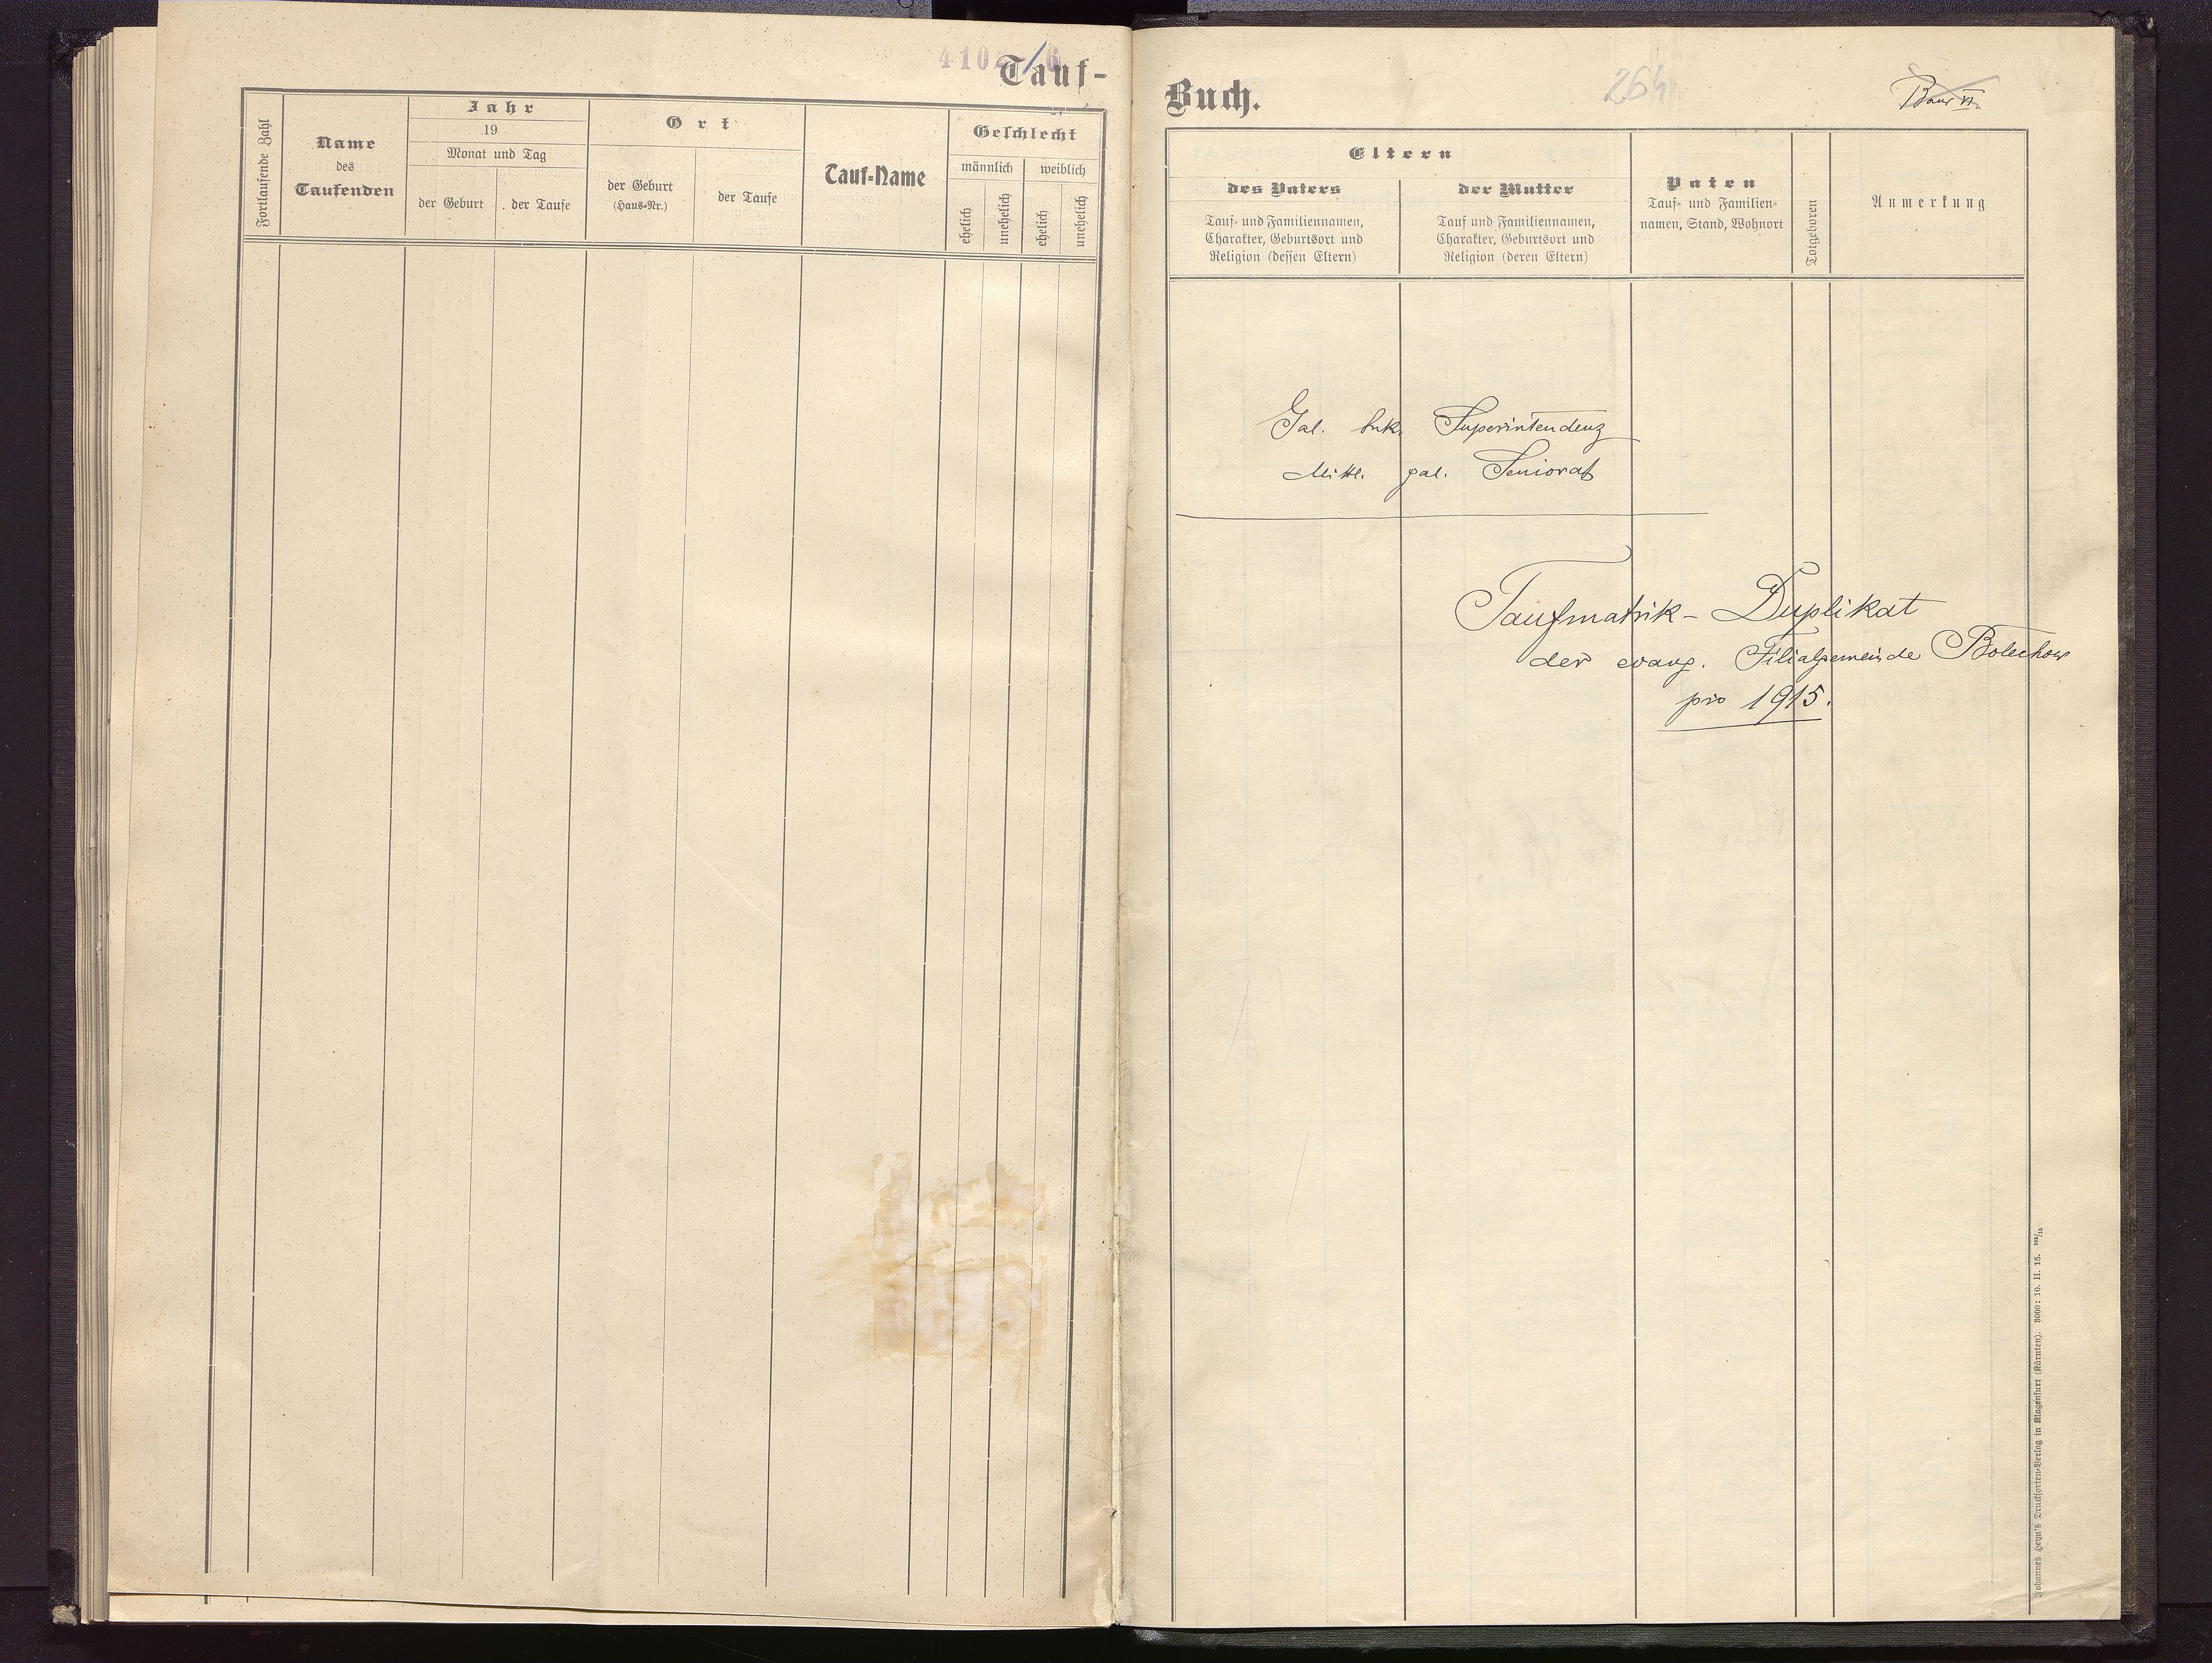 Tauf-
Fortlaufende Zahl
Name
des
Taufenden
Jahr
19
Monat und Tag
der Geburt
der Taufe
Ort
der Geburt
(Haus-Nr.)
der Taufe
Tauf-Name
Geschlecht
männlich
weiblich
ehelich
unehelich
ehelich
unehelich
Buch.
264
Eltern
des Vaters
Tauf- und Familiennamen,
Charakter, Geburtsort und
Religion (dessen Eltern)
der Mutter
Tauf und Familiennamen,
Charakter, Geburtsort und
Religion (deren Eltern)
Paten
Tauf- und Familien-
namen, Stand, Wohnort
Totgeboren
Anmerkung
Gal. buk. Superintendenz
Mittl. gal. Seniorat
Taufmatrik-Duplikat
der evang. Filialgemeinde Bolechow
pro 1915.
Johannes Heyn's Drucksorten-Verlag in Klagenfurt (Kärnten). 3000: 10. II. 15.